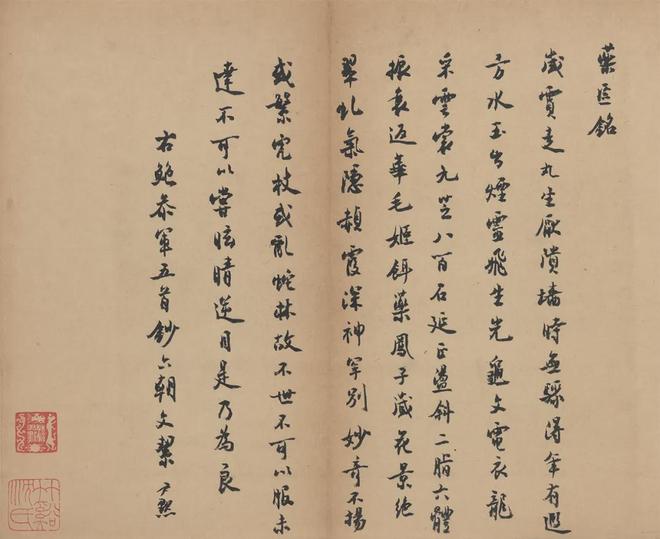 藥奩銘
歲賁走丸生厭潰墻時無驟得年有遐
方水玉出煙靈飛生光龜文電衣龍
采雲裳九芝八百石延正盪斜二脂六體
振衰返華毛姬餌藥鳳子藏花景絕
翠虬氣隱赬霞深神罕別妙奇不揚
或繁虎杖或亂蛇牀故不世不可以服未
達不可以嘗眩睛逆目是乃為良
右鮑參軍五首鈔六朝文絜 尹默
竹谿沈氏